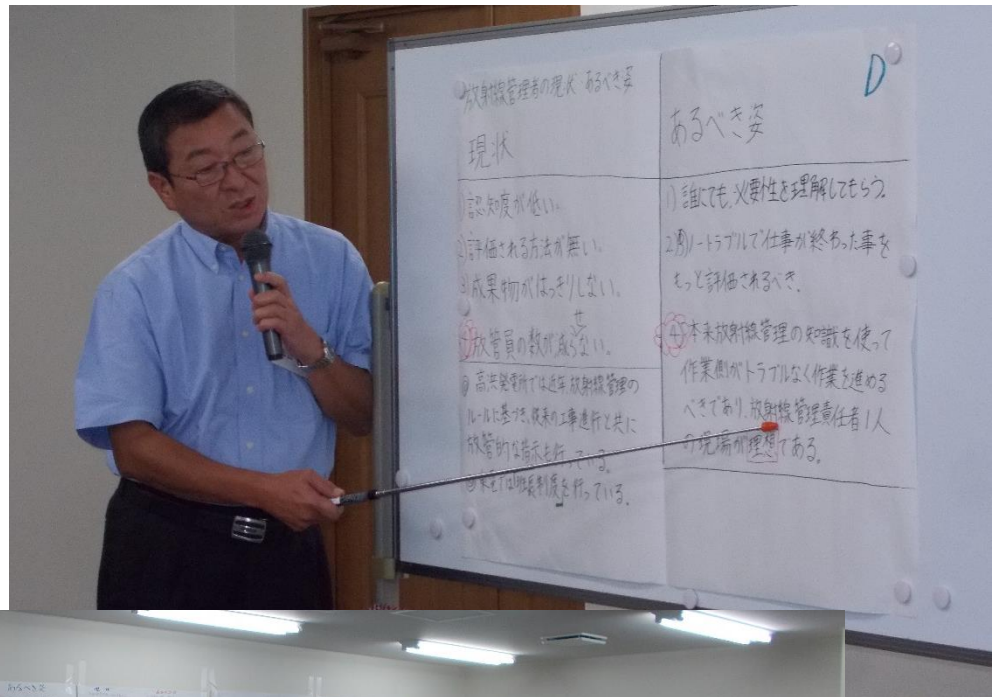 放射線管理者の現状・あるべき姿
現状
1)認知度が低い。
2)評価される方法が無い。
3)成果物がはっきりしない。
せ
4)放管員の数が減らない。
◎高浜発電所では近年放射線管理の
ルールに基づき、従来の工事進行と共に
放管的な指示も行っている。
では班長制度を行っている。
D
あるべき姿
1)誰にでも、必要性を理解してもらう。
2)3)ノートラブルで仕事が終わった事を
もっと評価されるべき。
4)本来放射線管理の知識を使って
作業側がトラブルなく作業を進める
べきであり、放射線管理責任者1人
の現場が理想である。
あるべき姿